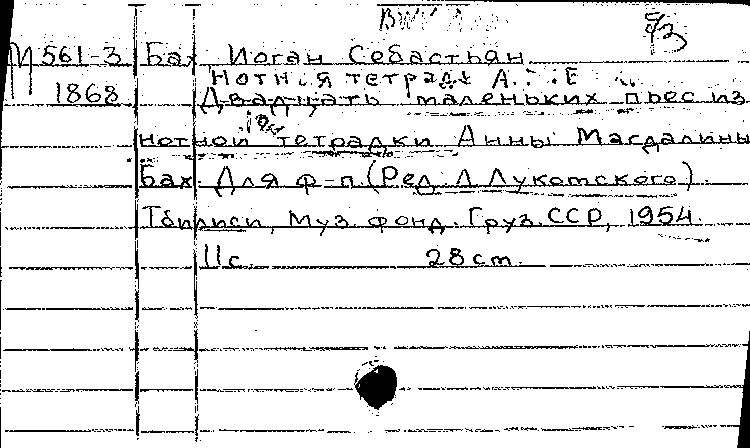 BWV
М 561-3 Бах Иоган Себастьян
Нотная тетрадь А.
1868 Двадцать маленьких пьес из
нотной тетрадки Анны Магдалины
Бах. Для ф-п. (Ред. Л Лукомского).
Тбилиси, Муз. фонд. Груз. ССР, 1954.
11 с. 28 cm.